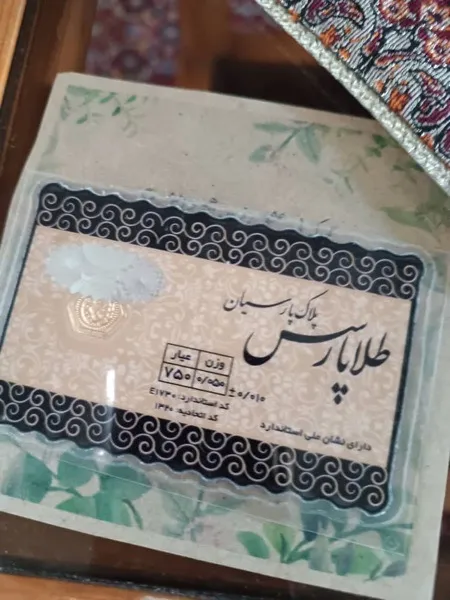 پلاک پارسیان
طلا پارس
وزن عیار
۰/۰۵۰ ۷۵۰
±۰/۰۱۰
کد استاندارد: E۱۷۳۰
کد اتحادیه: ۱۳۴۰
دارای نشان ملی استاندارد